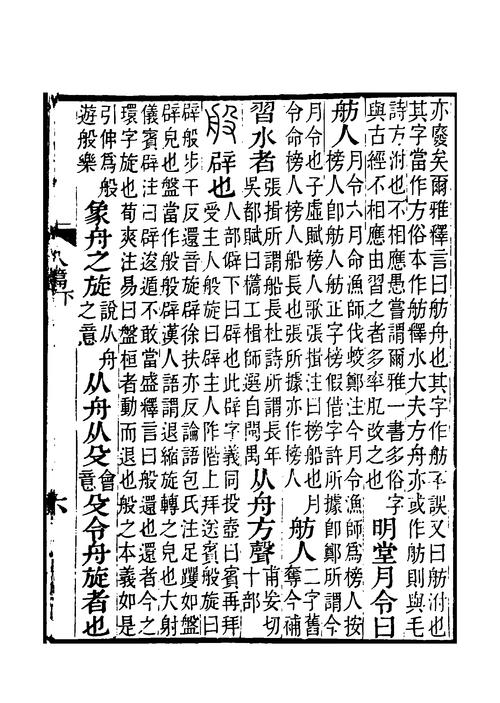 亦廢矣爾雅釋言曰舫舟也其字作舫不誤又曰舫泭也
其字當作方俗本作舫釋水大夫方舟亦或作舫則與毛
詩方泭也不相應愚嘗謂爾雅一書多俗字
與古經不相應由習之者多率肊改之也
明堂月令曰
舫人
月令六月命漁師伐蛟鄭注今月令漁師爲榜人按
榜人卽舫人舫正字榜假借字許所據卽鄭所謂今
月令也子虛賦榜人歌張揖注曰榜船也月
令命榜人榜人船長也張所據亦作榜人
舫人
二字舊
奪今補
習水者
張揖所謂船長杜詩所謂長年
吳都賦曰㰐工楫師選自閩禺
从舟方聲
甫妄切
十部
般
辟也
人部僻下曰辟也此辟字義同投壺曰賓再拜
受主人般旋曰辟主人阼階上拜送賓般旋曰
辟般步干反還音旋辟徐扶亦反論語包氏注足躩如盤
辟皃也盤當作般般辟漢人語謂退縮旋轉之皃也大射
儀賓辟注曰辟逡遁不敢當盛釋言曰般還也還者今之
環字旋也荀爽注易曰盤桓者動而退也般之本義如是
引伸爲般
遊般樂
象舟之旋
說从舟
之意
从舟从殳
會
意
殳令舟旋者也
八篇下
六